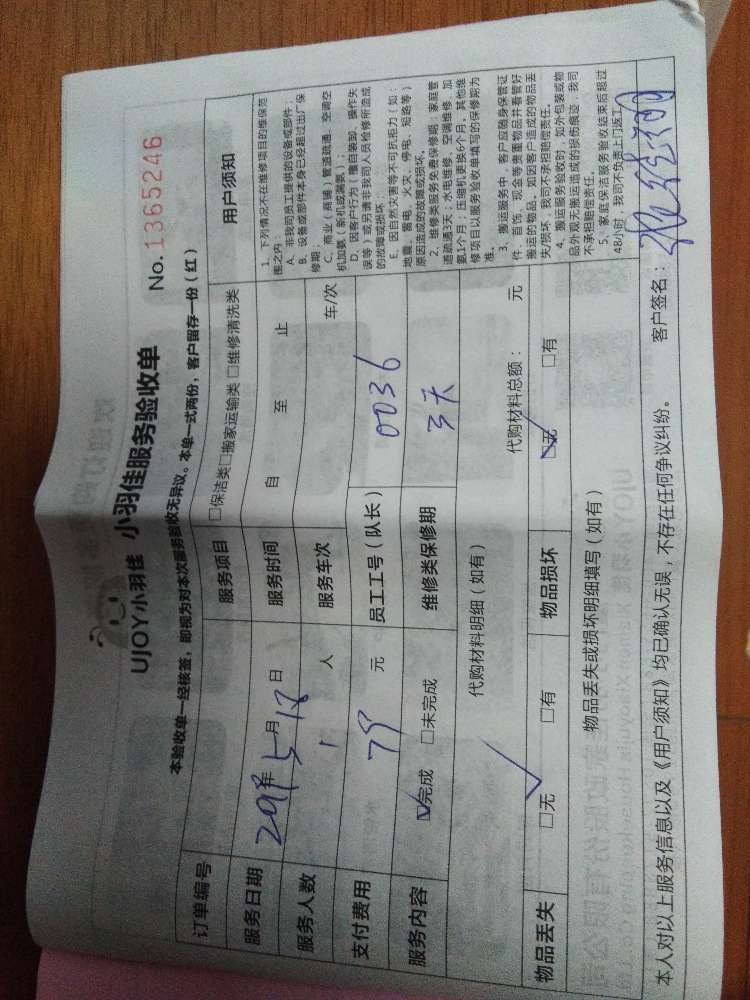 UJOY小羽佳 小羽佳服务验收单
No.1365246
本验收单一经核签，即视为对本次服务验收无异议。本单一式两份，客户留存一份（红）
订单编号
服务项目 □保洁类□搬家运输类 □维修清洗类
服务日期 年5月18日
服务时间 自 至 止
服务人数 1 人
服务车次 车/次
支付费用 79 元
员工工号（队长） 0036
服务内容 ☑完成 □未完成
维修类保修期 3天
代购材料明细（如有） 代购材料总额： 元
物品丢失 □无 □有
物品损坏 ☑无 □有
物品丢失或损坏明细填写（如有）
用户须知
1、下列情况不在维修项目的维保范
围之内
A、非我司员工提供的设备或部件；
B、设备或部件本身已经超过出厂保
修期；
C、商业（商铺）管道疏通、空调空
机加氨（新机或漏氨）；
D、因客户行为（擅自装卸、操作失
误等）或另请非我司人员检修所造成
的故障或损坏；
E、因自然灾害等不可抗拒力（如：
地震、雷电、火灾、停电、短路等）
原因造成的故障或损坏。
2、维修类服务免费保修期：家庭管
道疏通3天；水电维修、空调维修、加
氨1个月；压缩机更换6个月，其他维
修项目以服务验收单填写的保修期为
准。
3、搬运服务中，客户应随身保管证
件、首饰、现金等贵重物品并看管好
搬运的物品，如因客户造成的物品丢
失/损坏，我司不承担赔偿责任。
4、搬运服务验收时，如外包装或物
品外观无搬运造成的损伤痕迹，我司
不承担赔偿责任。
5、家庭保洁服务验收结束后超过
48小时，我司不负责上门返工。
本人对以上服务信息以及《用户须知》均已确认无误，不存在任何争议纠纷。 客户签名：